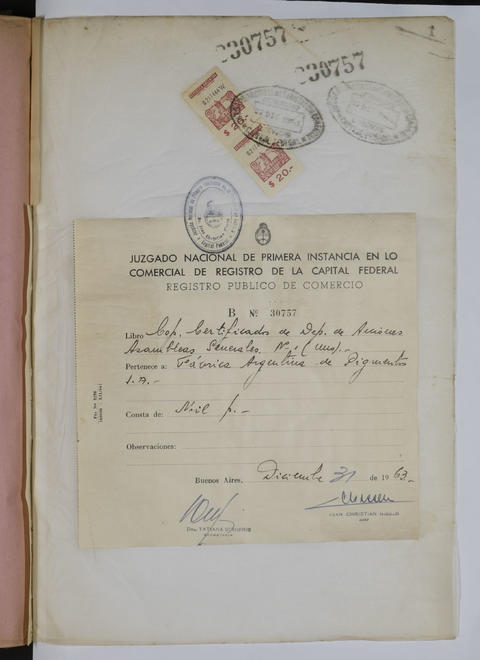 030757
030757
$ 20.-
JUZGADO NACIONAL DE PRIMERA INSTANCIA EN LO
COMERCIAL DE REGISTRO DE LA CAPITAL FEDERAL
REGISTRO PUBLICO DE COMERCIO
B Nº 30757
Libro Cop. Certificados de Dep. de Acciones
Asambleas Generales. Nº 1 (uno).-
Pertenece a: Fábrica Argentina de Pigmentos
S.A.-
Consta de: Mil f.-
Observaciones:
Buenos Aires, Diciembre 31 de 1963.-
Dra. TATIANA
SECRETARIA
JUAN CHRISTIAN
JUEZ